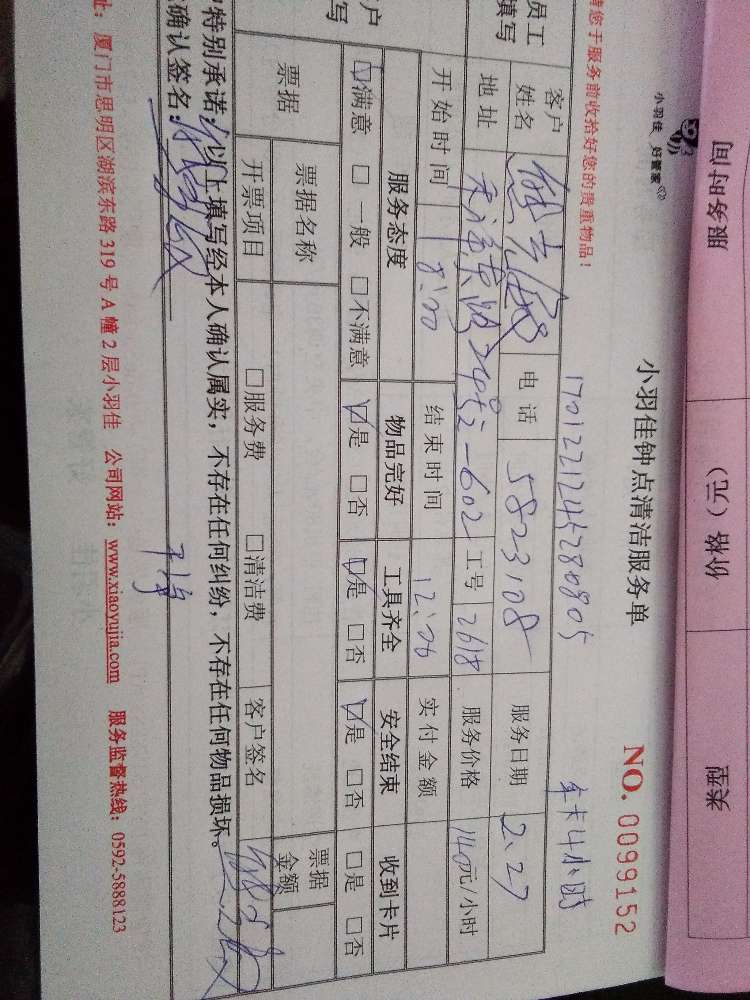 服务时间
价格（元）
类型
小羽佳 好管家
小羽佳钟点清洁服务单
NO. 0099152
1701221245280805
年卡4小时
请您于服务前收拾好您的贵重物品！
员工
填写
客户
姓名
电话
5823108
服务日期
2.27
地址
602
工号
2618
服务价格
140元/小时
开始时间
8:00
结束时间
12:00
实付金额
户
写
服务态度
物品完好
工具齐全
安全结束
收到卡片
☑满意 □一般 □不满意
☑是 □否
☑是 □否
☑是 □否
□是 □否
票据
票据名称
票据
金额
开票项目
□服务费 □清洁费
客户签名
特别承诺：以上填写经本人确认属实，不存在任何纠纷，不存在任何物品损坏。
确认签名：
址：厦门市思明区湖滨东路 319 号 A 幢 2 层小羽佳 公司网站：www.xiaoyujia.com 服务监督热线：0592-5888123